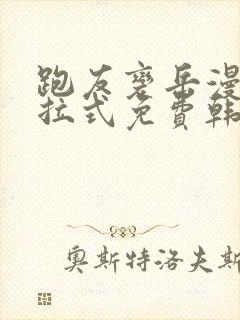 跑友襄岳漫
拉式免费韩
奥斯特洛夫斯